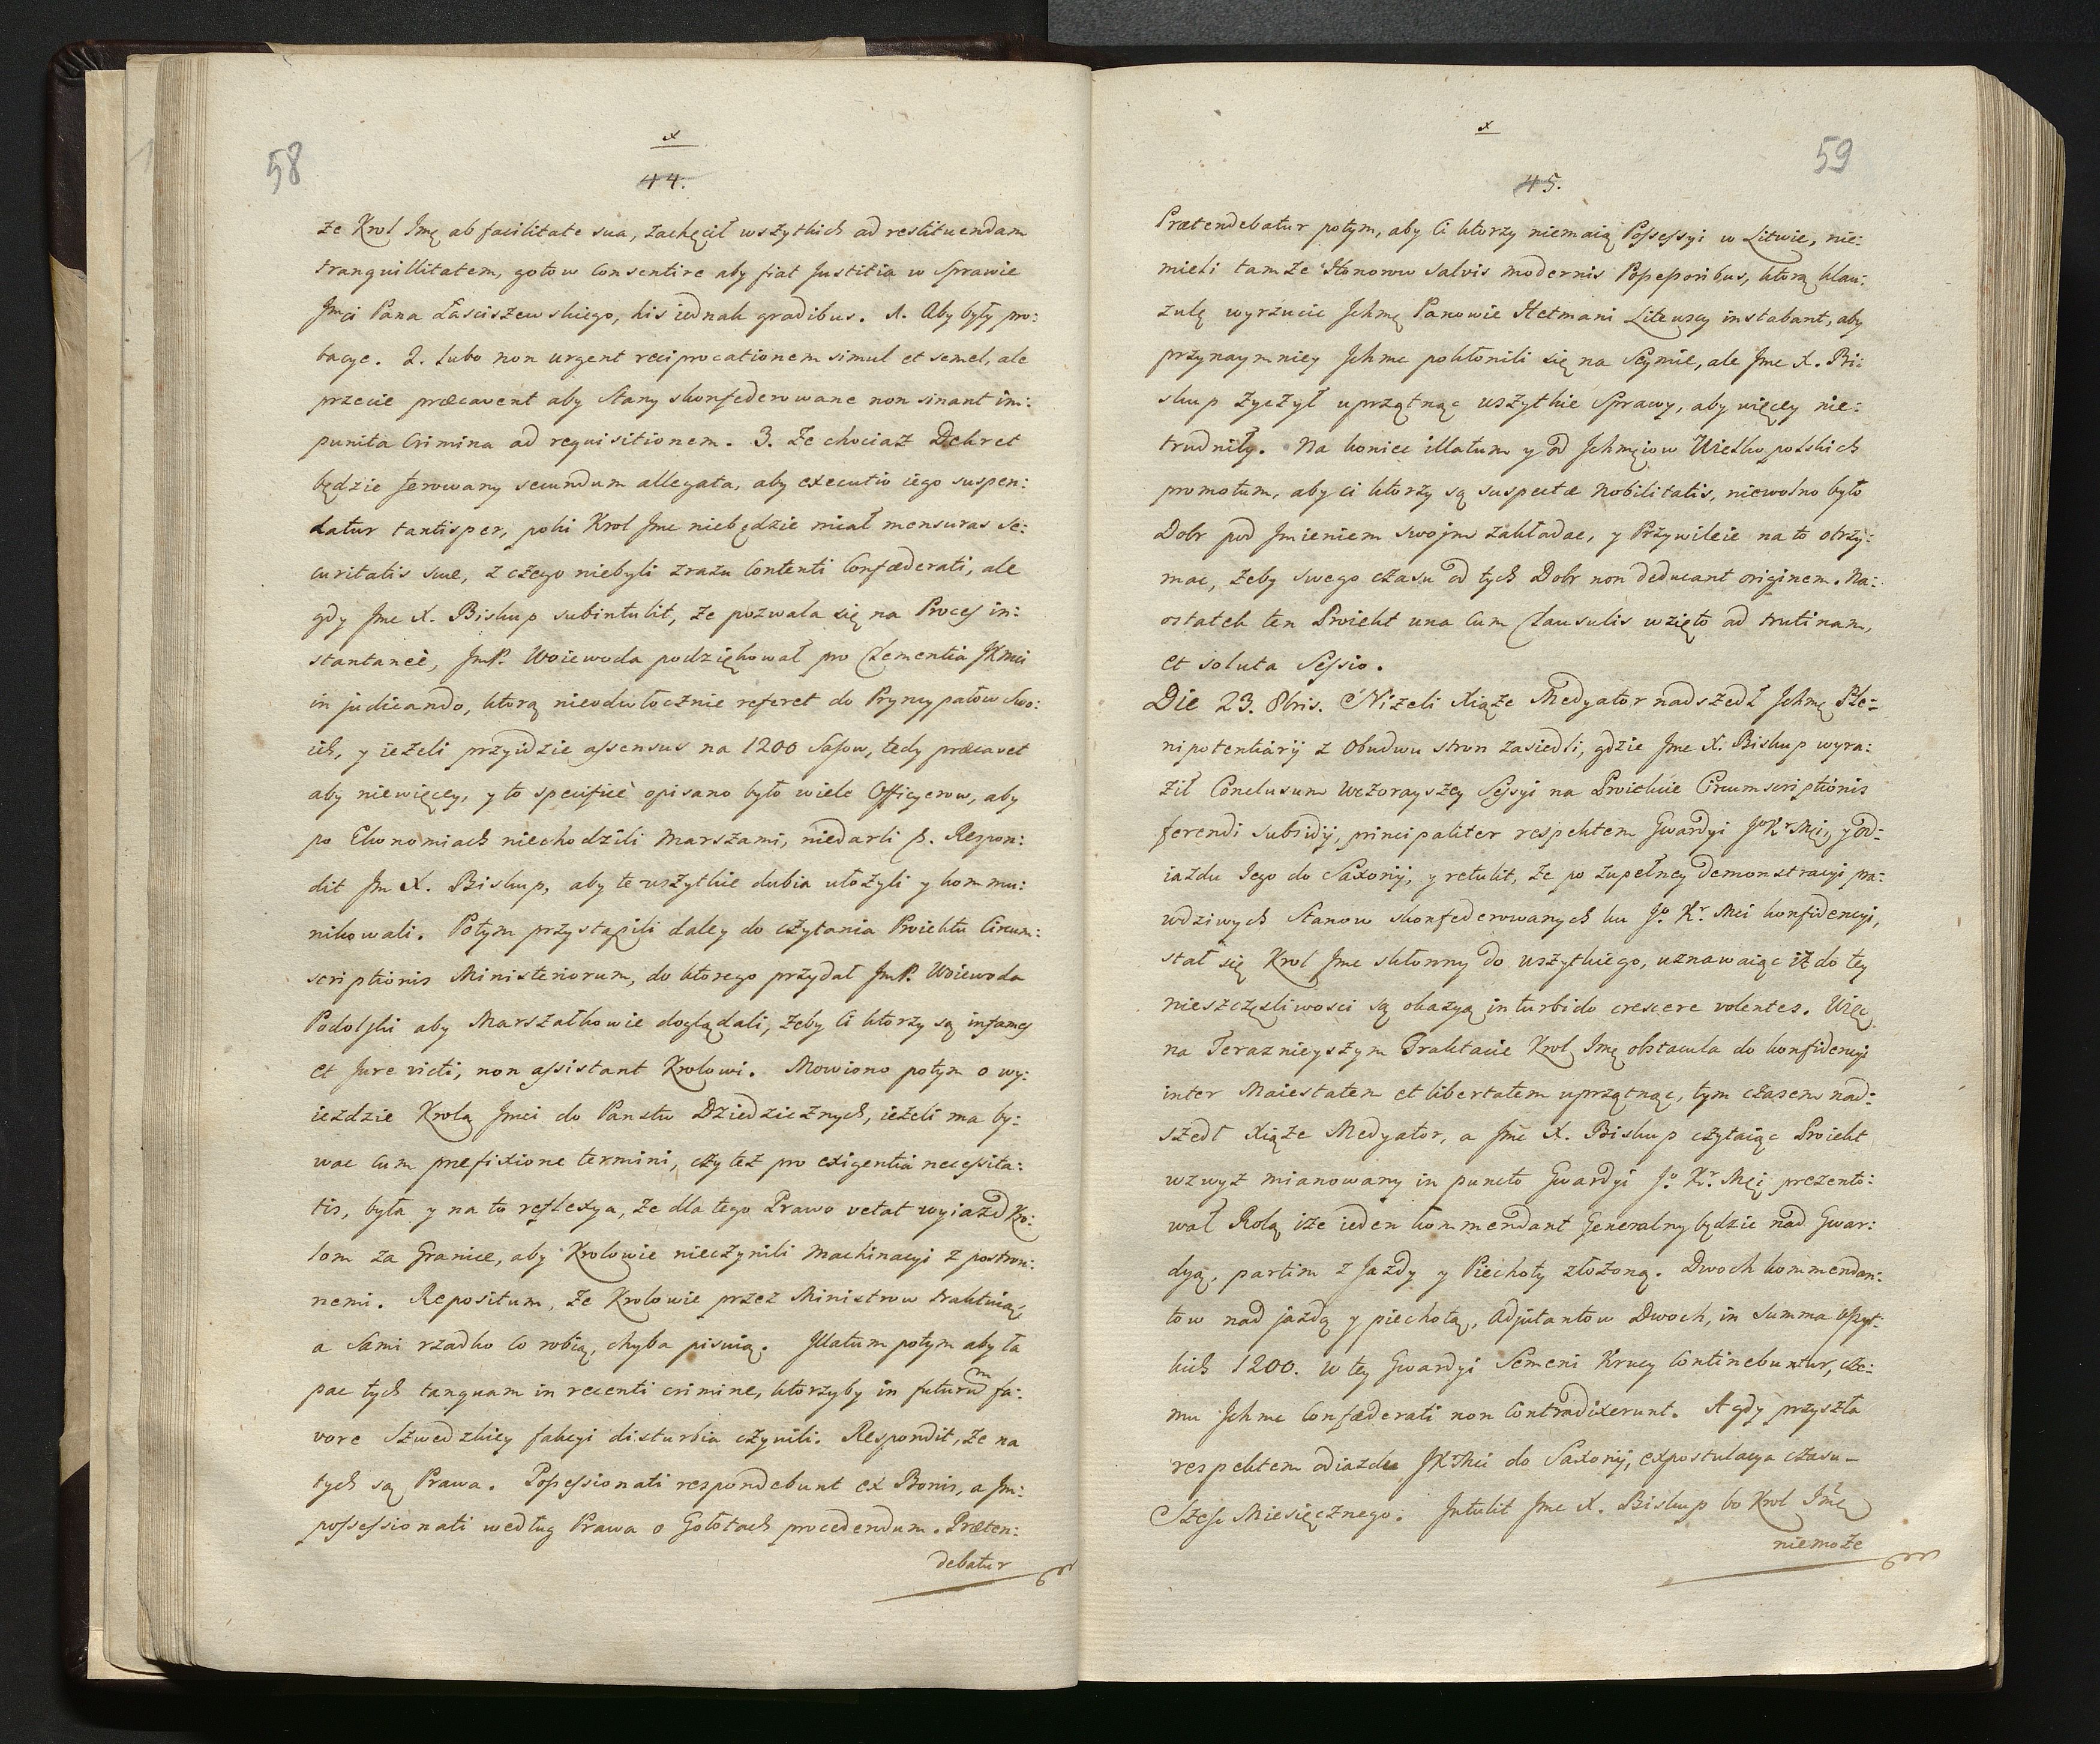 58
x
44.
że Krol Jmę ab facilitate sua, zachęcił wszytkich ad restituendam
tranquillitatem, gotow consentire aby fiat Justitia w Sprawie
Jmci Pana Łasciszewskiego, his iednak gradibus. 1. Aby były pro:
bacye. 2. Lubo non urgent reciprocationem simul et semel, ale
przecie præcavent aby Stany skonfederowane non sinant im:
punita Crimina ad requisitionem. 3. Że chociaż Dekret
będzie ferowany secundum allegata, aby executio iego suspen:
datur tantisper, poki Krol Jmc niebędzie miał mensuras se:
curitatis suæ, z czego niebyli zrazu Contenti Confæderati, ale
gdy Jmc X. Biskup subintulit, że pozwala się na Proces in:
stantaneè, JmP. Woiewoda podziękował pro Clementia JKmci
in judicando, ktorą nieodwłocznie referet do Pryncypałow Swo:
ich, y ieżeli przyidzie assensus na 1200 Sasow, tedy præcavet
aby niewięcey, y to specificè opisano było wiele Officyerow, aby
po Ekonomiach niechodzili marszami, niedarli p. Respon:
dit Jm X. Biskup, aby te wszytkie dubia ułożyli y kommu:
nikowali. Potym przystąpili daley do czytania Proiektu Circum:
scriptionis Ministeriorum, do ktorego przydał JmP. Woiewoda
Podolski aby Marszałkowie doglądali, żeby Ci ktorzy są infames
et Jure victi, non assistant Krolowi. Mowiono potym o wy:
ieździe Krola Jmci do Panstw Dziedzicznych, ieżeli ma by:
wac cum præfixione termini, czy też pro exigentia necessita:
tis, była y na to reflexya, że dla tego Prawo vetat wyiazd Kro:
lom za Granice, aby Krolowie nieczynili machinacyi z postron:
nemi. Repositum, że Krolowie przez Ministrow traktuią,
a Sami rzadko co robią, chyba piszą. Jllatum potym aby ła
pac tych tanquam in recenti crimine, ktorzyby in futurum fa:
vore Szwedzkiey fakcyi disturbia czynili. Respondit, że na
tych są Prawa. Possessionati respondebunt ex Bonis, a Jm:
possessionati według Prawa o Gołotach procedendum. Præten:
debatur
59
x
45.
Prætendebatur potym, aby Ci ktorzy niemaią Possessyi w Litwie, nie:
mieli tamże Honorow salvis modernis Possessoribus, ktorą klau:
zulę wyrzucic Jchmę Panowie Hetmani Litewscy instabant, aby
przynaymniey Jchmc pokłonili się na Seymie, ale Jmc X. Bi:
skup życzył uprzątnąc wszytkie Sprawy, aby więcey nie:
trudniły. Na koniec illatum y od Jchmęiow Wielkopolskich
promotum, aby ci ktorzy są suspectæ Nobilitatis, niewolno było
Dobr pod Jmieniem swojm zakładac, y Przywileie na to otrzy:
mac, żeby swego czasu od tych Dobr non deducant originem. Na:
ostatek ten Proiekt una cum Clausulis wzięto ad trutinam,
et soluta Sessio.
Die 23. 8bris. Niżeli Xiąże Medyator nadszedł Jchmę Ple:
nipotentiarij z obudwu stron zasiedli, gdzie Jmc X. Biskup wyra:
żił Conclusum wczorayszey Sessyi na Proiekcie Circumscriptionis
ferendi subsidij, principaliter respektem Gwardyi JoKr Mci, y od:
iazdu Jego do Saxonij, y retulit, że po zupełney demonstracyi pra:
wdziwych Stanow skonfederowanych ku Jo. Kr. Mci konfidencyi,
stał się Krol Jmc skłonny do wszytkiego, uznawaiąc iż do tey
nieszczęsliwosci są okazyą in turbido crescere volentes. Więc
na Teraznieyszym Traktacie Krol Jmę obstacula do konfidencyi
inter Maiestatem et libertatem uprzątnąc, tym czasem nad:
szedł Xiąże Medyator, a Jmc X. Biskup czytaiąc Proiekt
wzwyż mianowany in puncto Gwardyi Jo. Kr. Mci prezento:
wał Rolą iże ieden kommendant Generalny będzie nad Gwar:
dyą, partim z Jazdy y Piechoty złożoną. Dwoch kommendan:
tow nad jazdą y piechotą, Adjutantow Dwoch, in Summa wszyt:
kich 1200. w tey Gwardyi Semeni Krucy Continebuntur, cze:
mu Jchmc Confæderati non Contradixerunt. A gdy przyszła
respektem odiazdu JKrMci do Saxonij, expostulacya czasu
Szesc Miesięcznego. Jntulit Jmc X. Biskup bo Krol Jmę
niemoże